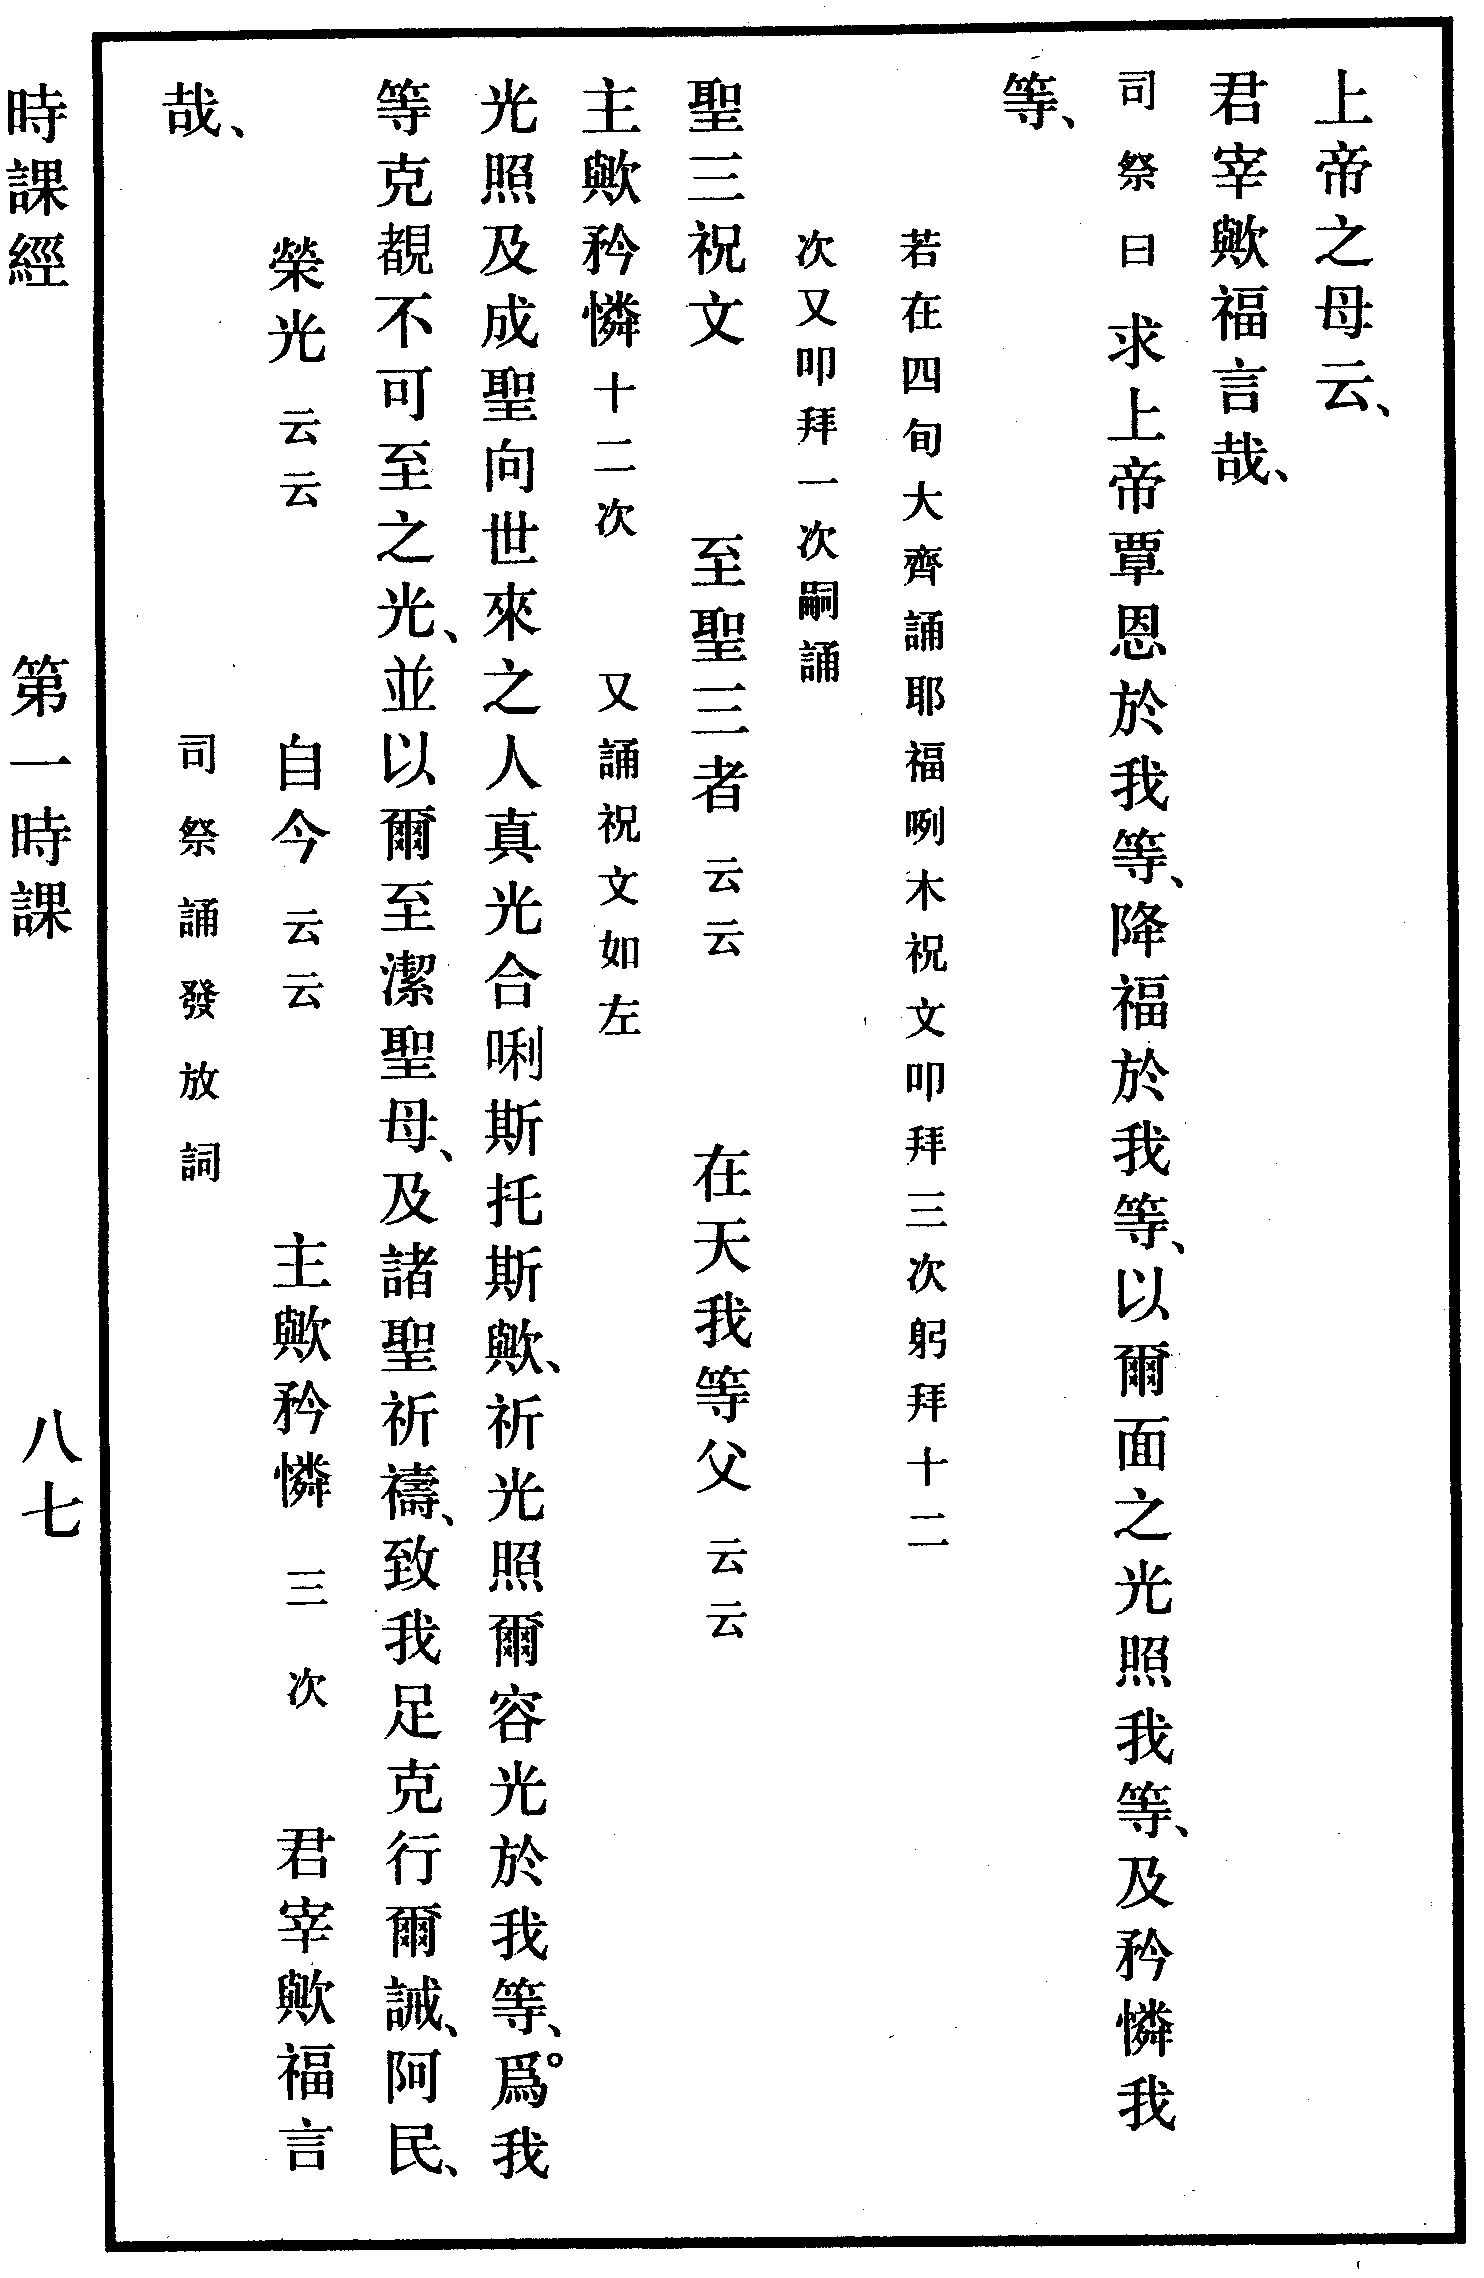 上帝之母云、
君宰歟福言哉、
司祭曰 求上帝覃恩於我等、降福於我等、以爾面之光照我等、及矜憐我
等、
若在四旬大齊誦耶福咧木祝文叩拜三次躬拜十二
次又叩拜一次嗣誦
聖三祝文 至聖三者 云云 在天我等父 云云
主歟矜憐 十二次 又誦祝文如左
光照及成聖向世來之人真光合唎斯托斯歟、祈光照爾容光於我等、爲。我
等克覩不可至之光、並以爾至潔聖母、及諸聖祈禱、致我足克行爾誡、阿民、
榮光 云云 自今 云云 主歟矜憐 三次 君宰歟福言
哉、 司祭誦發放詞
時課經 第一時課 八七